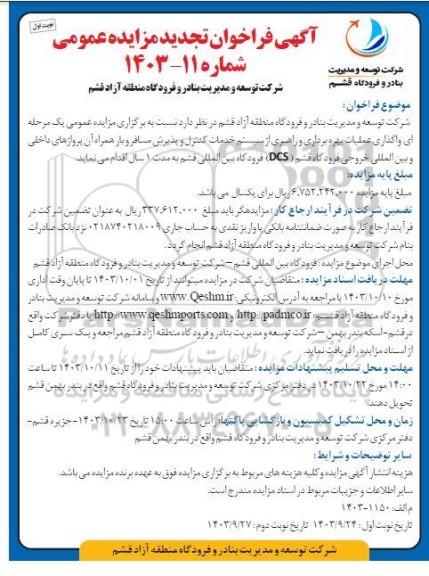 نوبت اول
آگهی فراخوان تجدید مزایده عمومی
شماره ۱۱-۱۴۰۳
شرکت توسعه و مدیریت بنادر و فرودگاه منطقه آزاد قشم
شرکت توسعه و مدیریت
بنادر و فرودگاه قشم
موضوع فراخوان:
شرکت توسعه و مدیریت بنادر و فرودگاه منطقه آزاد قشم در نظر دارد نسبت به برگزاری مزایده عمومی یک مرحله
ای واگذاری عملیات بهره برداری و راهبری از سیستم خدمات کنترل و پذیرش مسافر و بار همراه آن پروازهای داخلی
و بین المللی خروجی فرودگاه قشم (DCS) فرودگاه بین المللی قشم به مدت ۱ سال اقدام می نماید.
مبلغ پایه مزایده:
مبلغ پایه مزایده ۶,۷۵۲,۲۴۲,۰۰۰ ریال برای یکسال می باشد.
تضمین شرکت در فرآیند ارجاع کار: مزایده گر باید مبلغ ۳۳۷,۶۱۲,۰۰۰ ریال به عنوان تضمین شرکت در
فرآیند ارجاع کار به صورت ضمانتنامه بانکی یا واریز نقدی به حساب جاری ۰۲۱۸۷۴۰۲۱۸۰۰۹ نزد بانک صادرات
بنام شرکت توسعه و مدیریت بنادر و فرودگاه منطقه آزاد قشم انجام گردد.
محل اجرای موضوع مزایده: فرودگاه بین المللی قشم – شرکت توسعه و مدیریت بنادر و فرودگاه منطقه آزاد قشم
مهلت دریافت اسناد مزایده: متقاضیان شرکت در مزایده میتوانند از تاریخ ۱۴۰۳/۱۰/۰۱ تا پایان وقت اداری
مورخ ۱۴۰۳/۱۰/۱۰ با مراجعه به آدرس الکترونیکی: www.Qeshm.ir و سامانه شرکت توسعه و مدیریت بنادر
و فرودگاه منطقه آزاد قشم: http://padmco.ir و http://www.qeshmports.com یا دفتر شرکت واقع
در قشم-اسکله بندر بهمن – شرکت توسعه و مدیریت بنادر و فرودگاه منطقه آزاد قشم مراجعه و یک سری کامل
از اسناد مزایده را دریافت نماید.
مهلت و محل تسلیم پیشنهادات مزایده: متقاضیان باید پیشنهادات خود را از تاریخ ۱۴۰۳/۱۰/۱۱ تا ساعت
۱۴:۰۰ مورخ ۱۴۰۳/۱۰/۲۲ در دفتر مرکزی شرکت توسعه و مدیریت بنادر و فرودگاه قشم واقع در بندر بهمن قشم
تحویل دهند.
زمان و محل تشکیل کمیسیون و بازگشایی پاکتها: رأس ساعت ۱۵:۰۰ تاریخ ۱۴۰۳/۱۰/۲۳ – جزیره قشم-
دفتر مرکزی شرکت توسعه و مدیریت بنادر و فرودگاه منطقه آزاد قشم واقع در بندر بهمن قشم
سایر توضیحات و شرایط:
هزینه انتشار آگهی مزایده و کلیه هزینه های مربوط به برگزاری مزایده فوق به عهده برنده مزایده می باشد.
سایر اطلاعات و جزییات مربوط در اسناد مزایده مندرج است.
م الف: ۱۱۵۰-۱۴۰۳
تاریخ نوبت اول: ۱۴۰۳/۹/۲۴ تاریخ نوبت دوم: ۱۴۰۳/۹/۲۷
شرکت توسعه و مدیریت بنادر و فرودگاه منطقه آزاد قشم